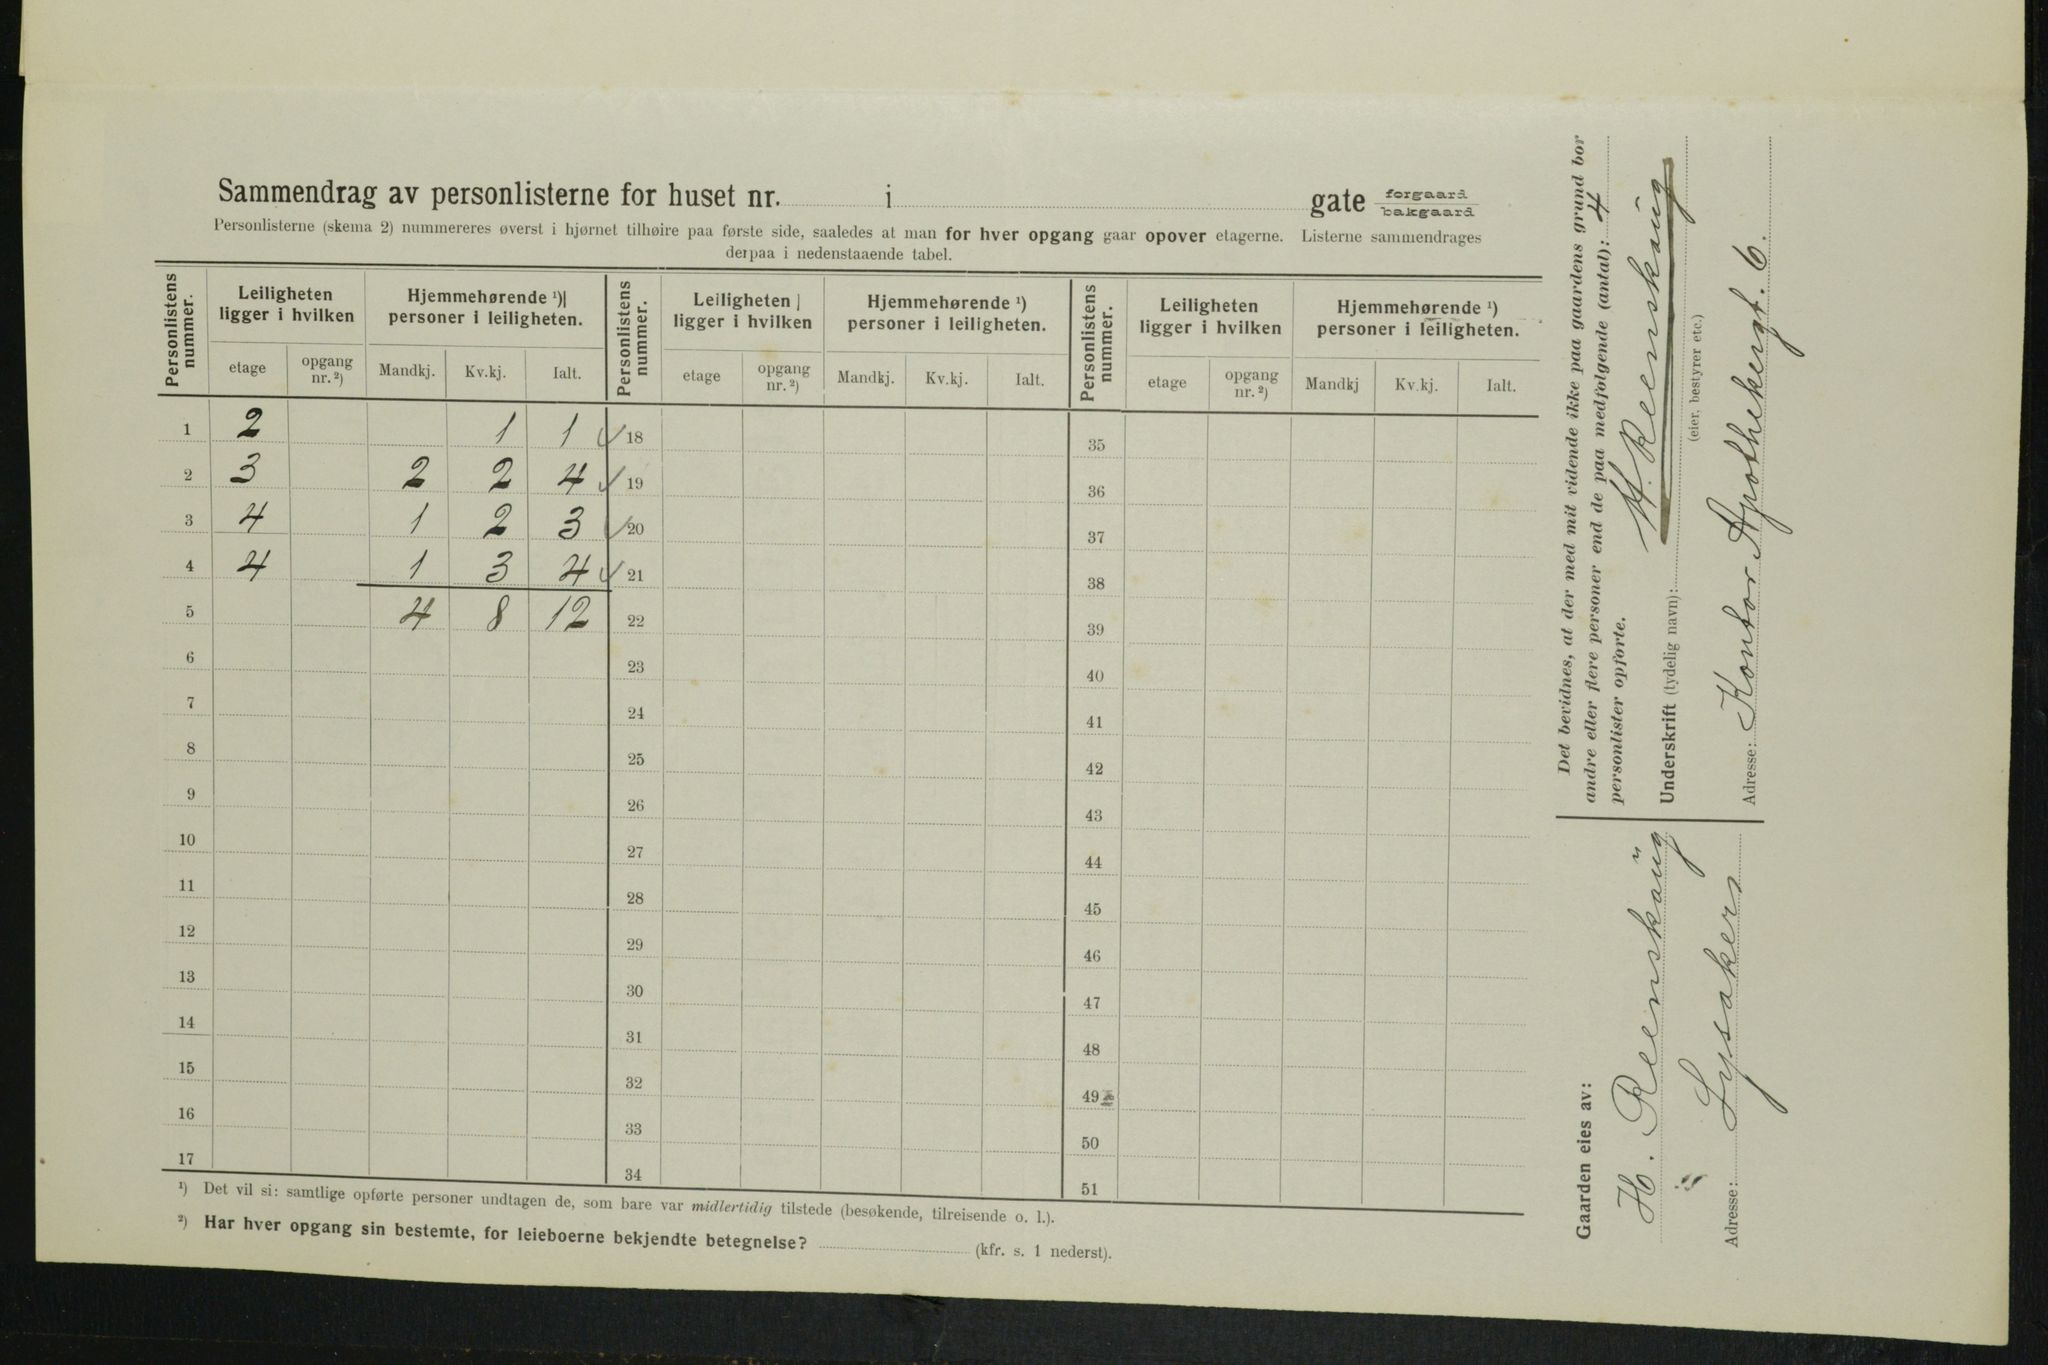 Sammendrag av personlisterne for huset nr. i gate forgaard
bakgaard
Personlisterne (skema 2) nummereres øverst i hjørnet tilhøire paa første side, saaledes at man for hver opgang gaar opover etagerne. Listerne sammendrages
derpaa i nedenstaaende tabel.
Personlistens nummer. Leiligheten ligger i hvilken Hjemmehørende ¹) personer i leiligheten. Personlistens nummer. Leiligheten ligger i hvilken Hjemmehørende ¹) personer i leiligheten. Personlistens nummer. Leiligheten ligger i hvilken Hjemmehørende ¹) personer i leiligheten.
etage opgang nr. ²) Mandkj. Kv.kj. Ialt. etage opgang nr. ²) Mandkj. Kv.kj. Ialt. etage opgang nr. ²) Mandkj Kv.kj. Ialt.
1 2 1 1 18 35
2 3 2 2 4 19 36
3 4 1 2 3 20 37
4 4 1 3 4 21 38
5 4 8 12 22 39
6 23 40
7 24 41
8 25 42
9 26 43
10 27 44
11 28 45
12 29 46
13 30 47
14 31 48
15 32 49
16 33 50
17 34 51
¹) Det vil si: samtlige opførte personer undtagen de, som bare var midlertidig tilstede (besøkende, tilreisende o. l.).
²) Har hver opgang sin bestemte, for leieboerne bekjendte betegnelse? (kfr. s. 1 nederst).
Det bevidnes, at der med mit vidende ikke paa gaardens grund bor
andre eller flere personer end de paa medfølgende (antal): 4
personlister opførte.
H. Reenskaug
Underskrift (tydelig navn):
(eier, bestyrer etc.)
Adresse: Kontor Apothekergt. 6.
Gaarden eies av:
H. Reenskaug
Adresse: Lysaker